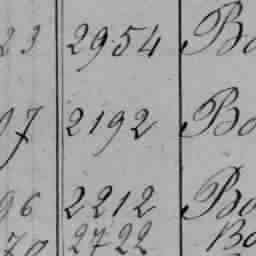 23 2954 Bo
97 2192 Bo
96 2212 Bo
70 2722 Bo